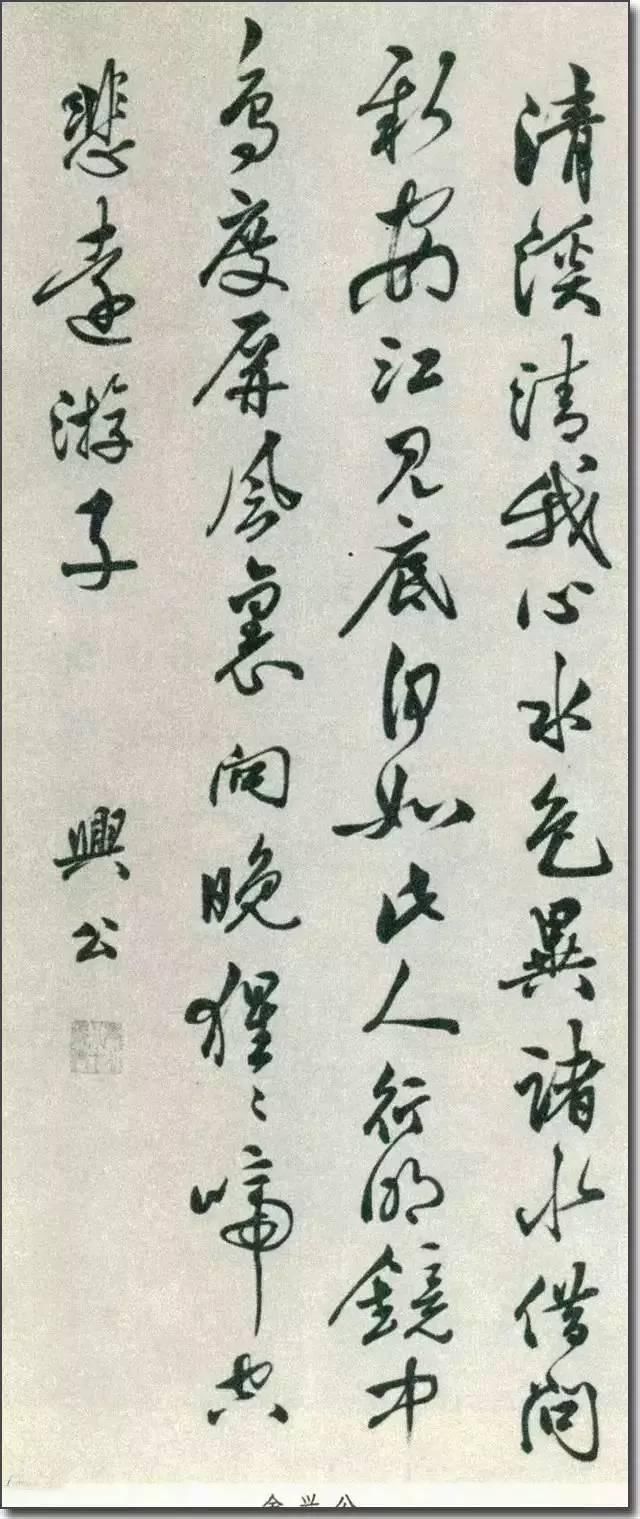 清溪清我心水色異諸水借問
新安江見底何如此人行明鏡中
鳥度屏風裏向晚猩〻啼空
悲遠游子
興公
余兴公